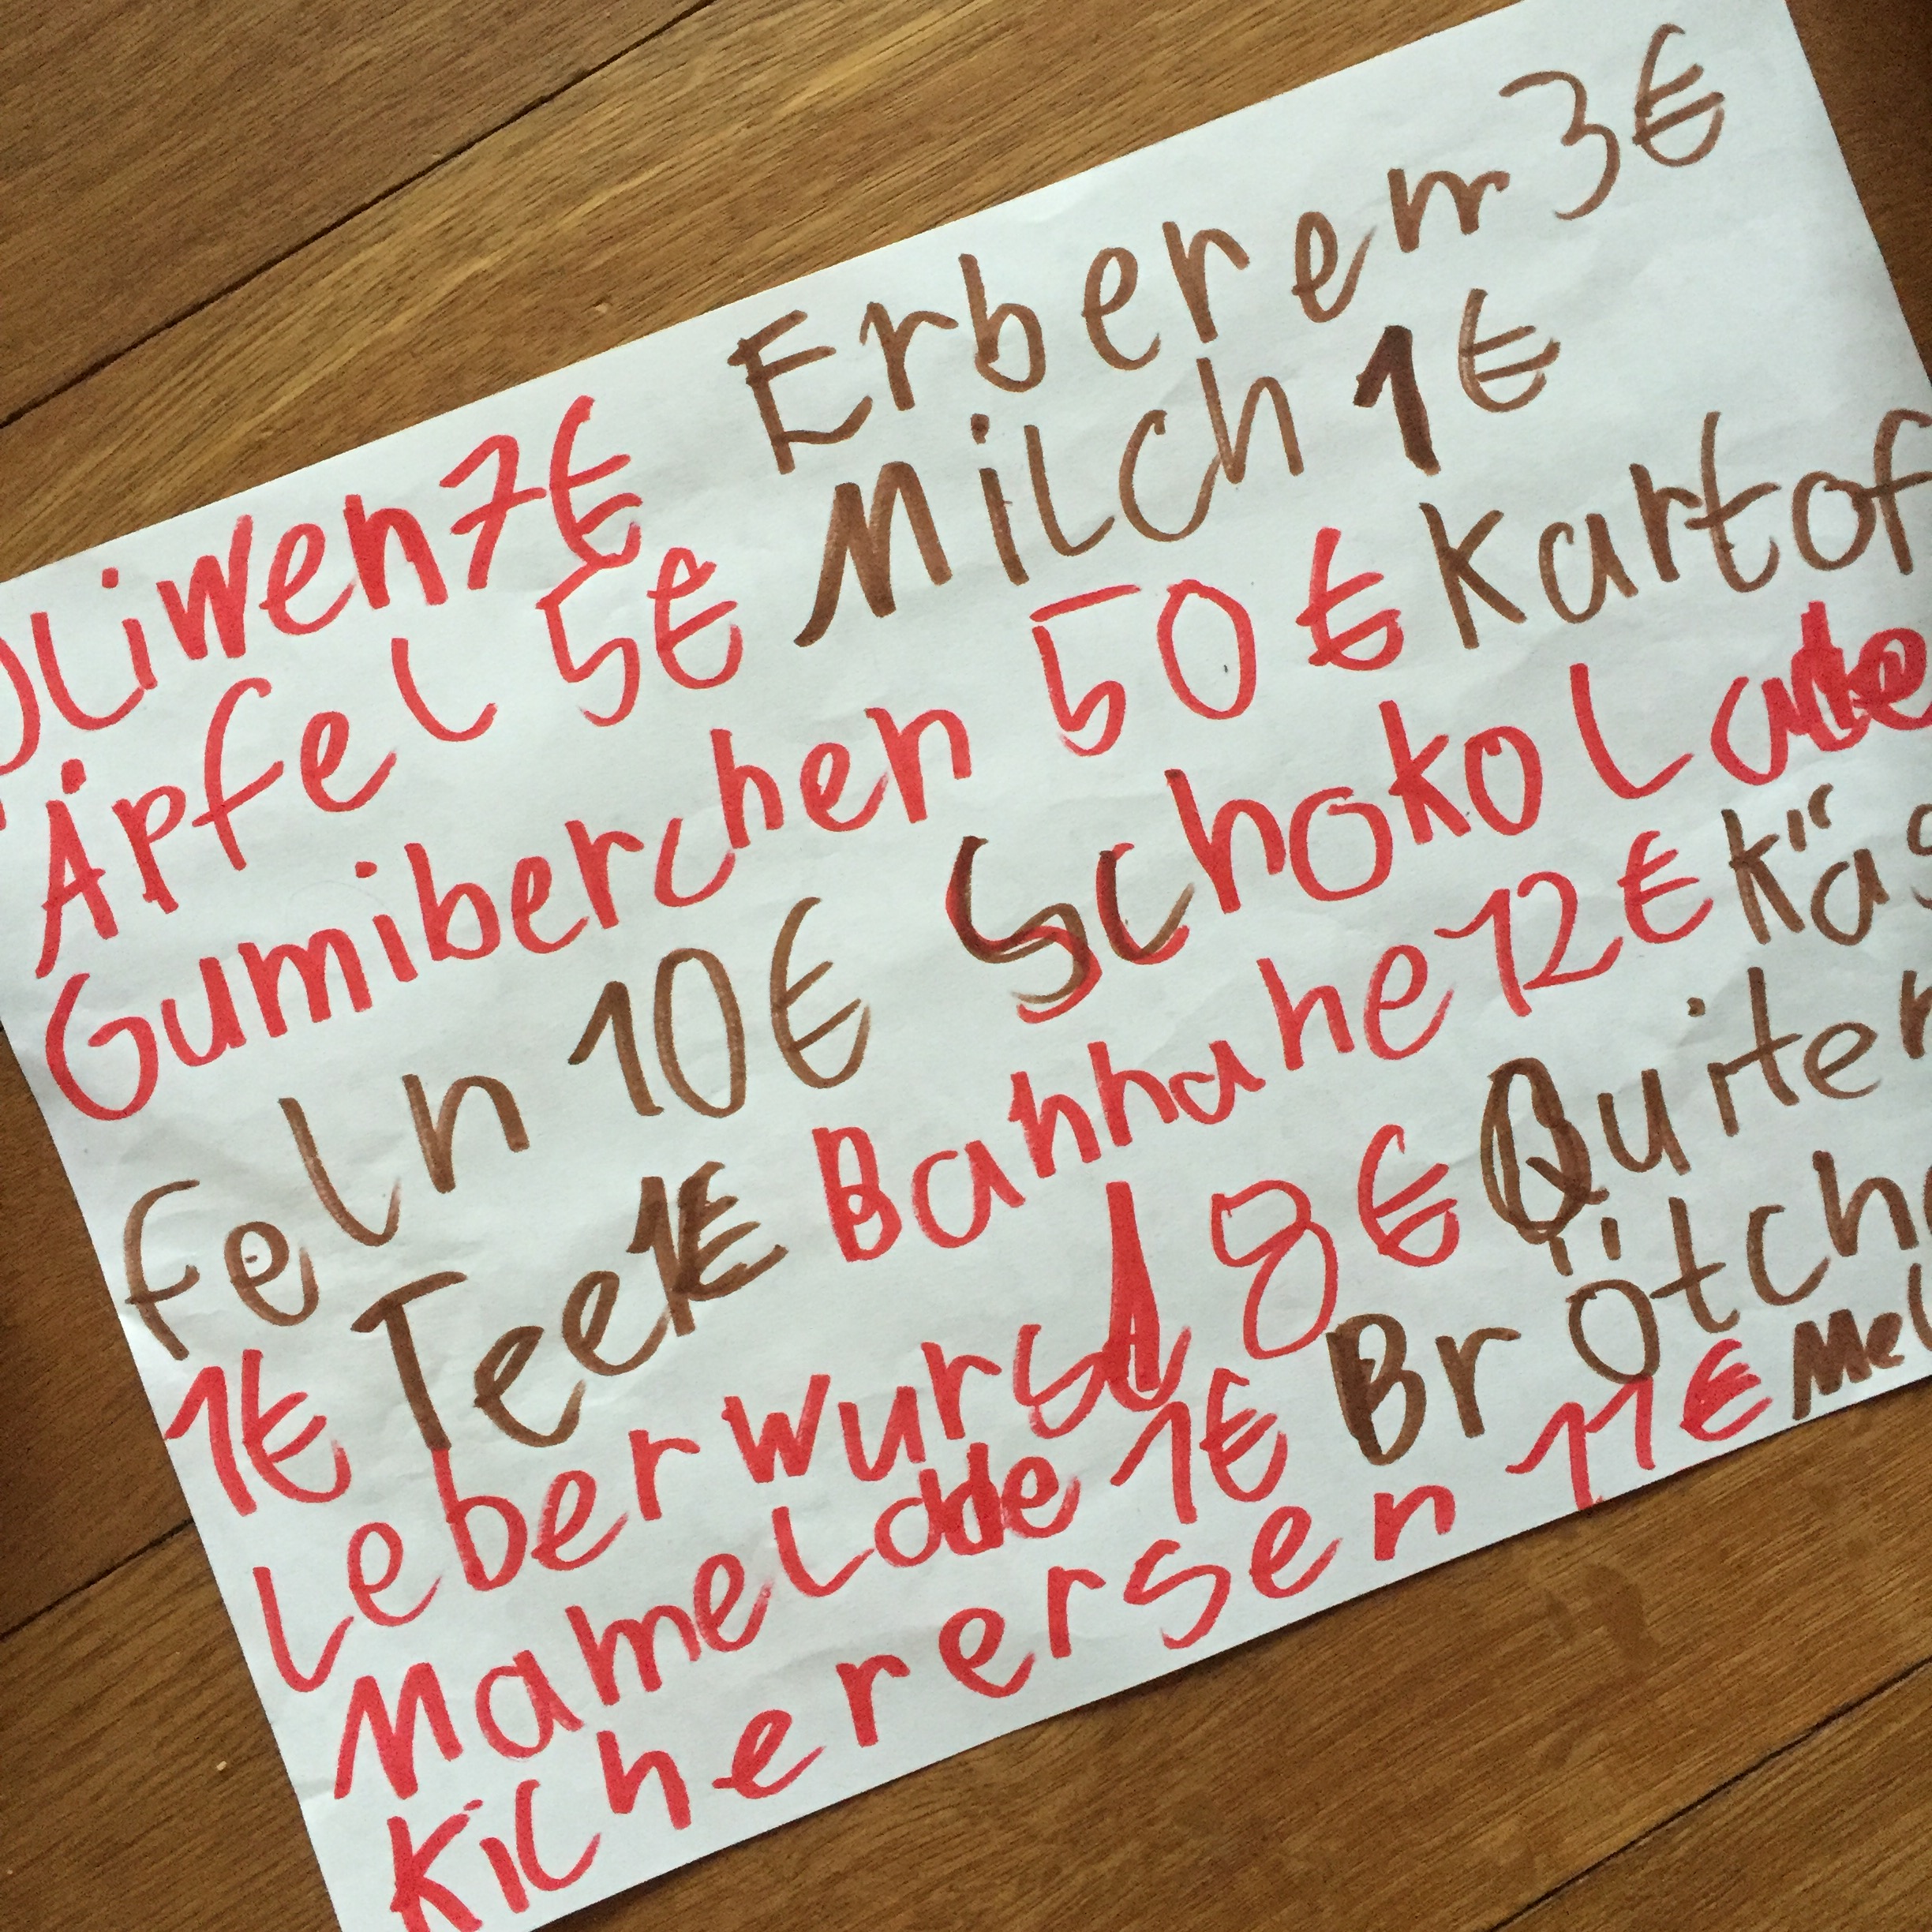 Oliwen 7€ Erberem 3€
Äpfel 5€ Milch 1€
Gumiberchen 50 € Kartof
feln 10€ Schokolate
1€ Tee 1€ Bahnahe 12€ Käs
Leberwurst 8€ Quiten
Mameladde 1€ Brötche
Kichererersen 11€ Mel